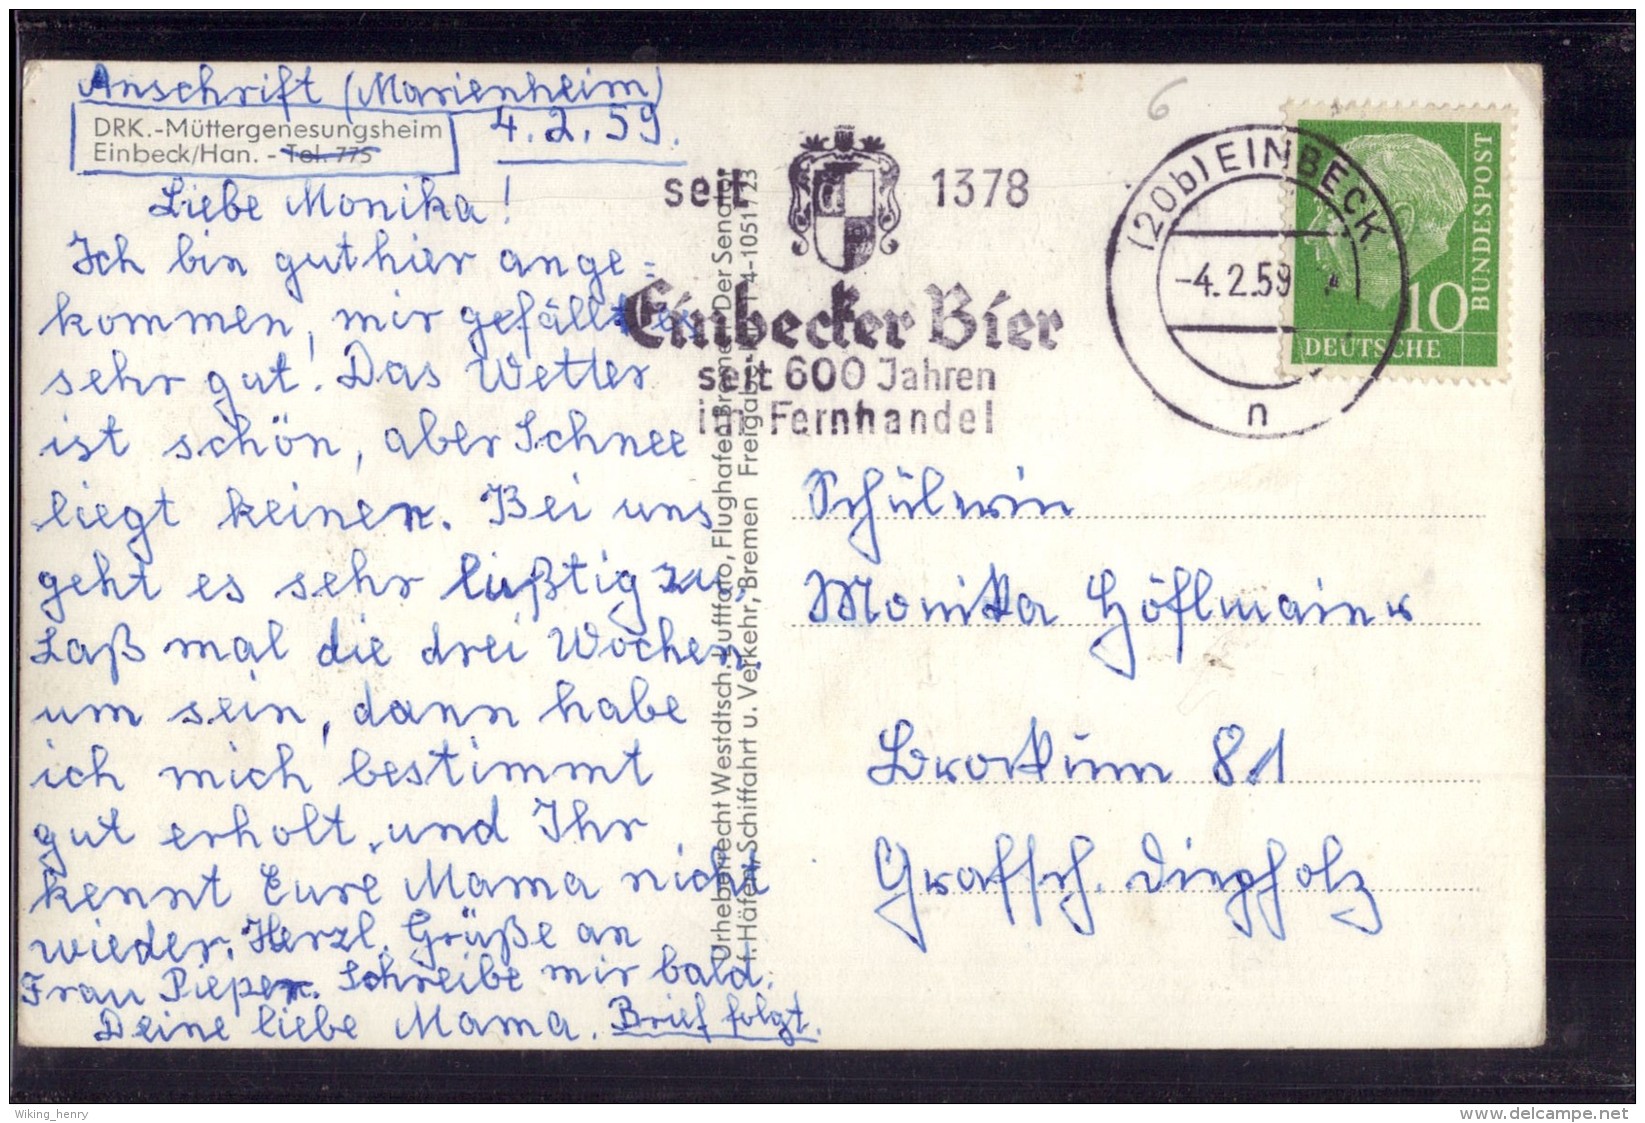 Anschrift (Marienheim)
DRK.-Müttergenesungsheim
Einbeck/Han. - Tel. 775
4.2.59.
Liebe Monika!
Ich bin gut hier ange=
kommen, mir gefällt es
sehr gut! Das Wetter
ist schön, aber Schnee
liegt keiner. Bei uns
geht es sehr lußtig zu.
Laß mal die drei Wochen
um sein, dann habe
ich mich bestimmt
gut erholt, und Ihr
kennt Eure Mama nicht
wieder. Herzl. Grüße an
Frau Pieper. Schreibe mir bald.
Deine liebe Mama. Brief folgt.
Urheberrecht Westdtsch. Luftfoto, Flughafen Bremen Der Senator
f. Häfen, Schiffahrt u. Verkehr, Bremen Freigabe
seit 1378
Einbecker Bier
seit 600 Jahren
im Fernhandel
(20b) EINBECK
-4.2.59
n
10
DEUTSCHE
BUNDESPOST
6
Schülerin
Monika Höflmaier
Brockum 81
Grafsch. Diepholz
Wiking_henry
www.delcampe.net